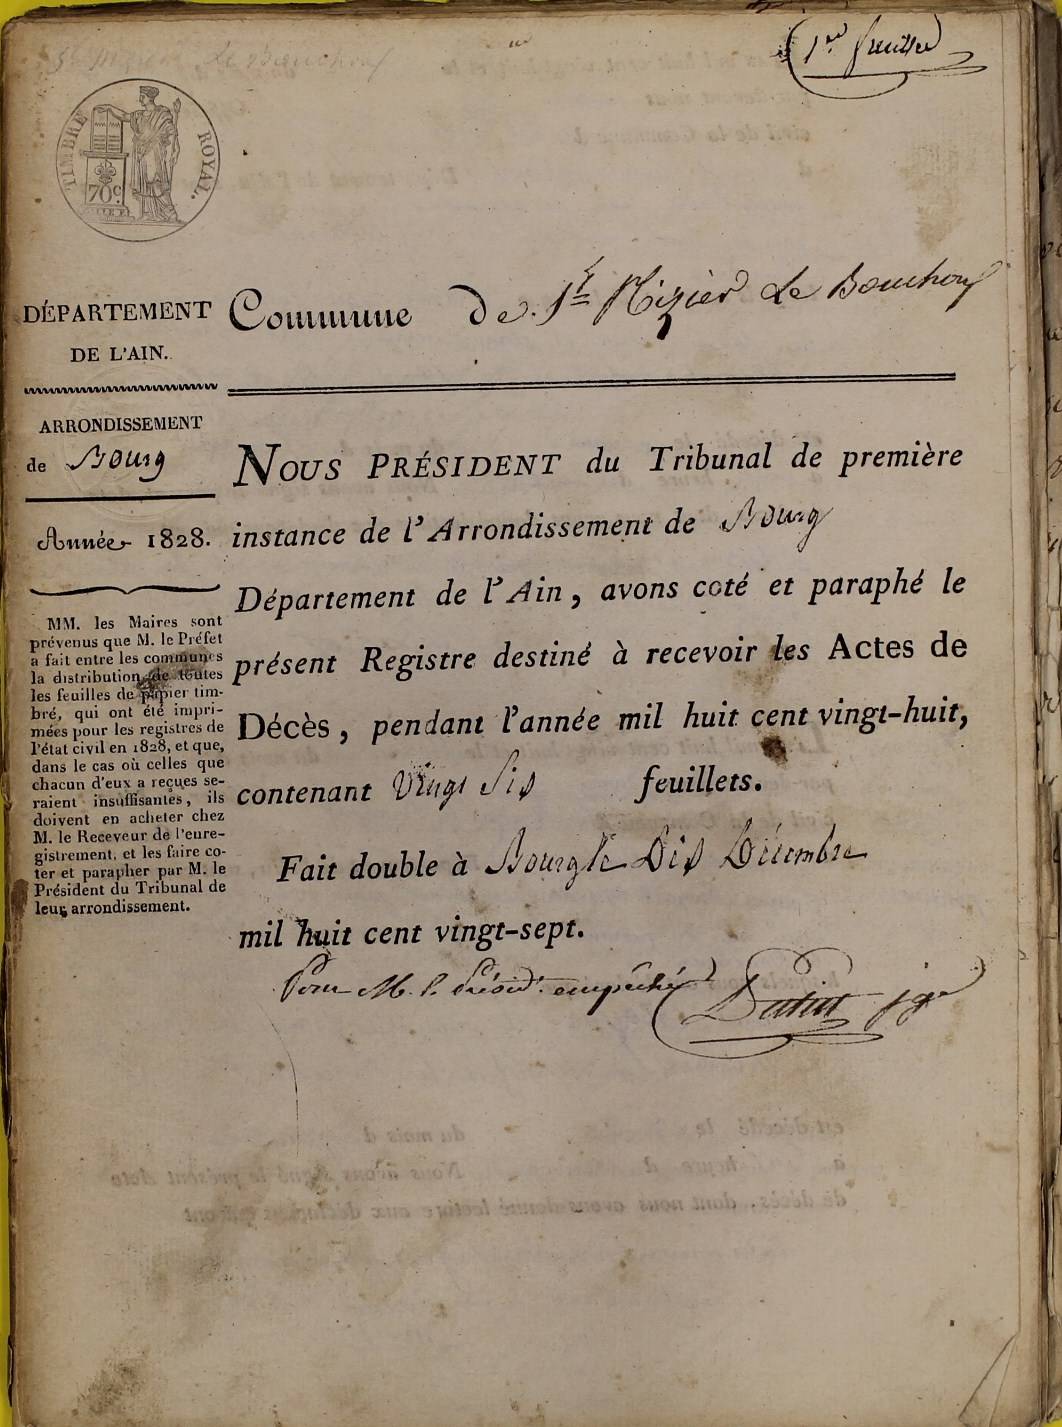 1er feuillet
St Nizier Le Bouchoux
TIMBRE ROYAL.
70c
DÉPARTEMENT
DE L'AIN.
Commune De St Nizier Le Bouchoux
ARRONDISSEMENT
de Bourg
Année 1828.
MM. les Maires sont
prévenus que M. le Préfet
a fait entre les communes
la distribution de toutes
les feuilles de papier tim-
bré, qui ont été impri-
mées pour les registres de
l'état civil en 1828, et que,
dans le cas où celles que
chacun d'eux a reçues se-
raient insuffisantes, ils
doivent en acheter chez
M. le Receveur de l'enre-
gistrement, et les faire co-
ter et parapher par M. le
Président du Tribunal de
leur arrondissement.
NOUS PRÉSIDENT du Tribunal de première
instance de l'Arrondissement de Bourg
Département de l'Ain, avons coté et paraphé le
présent Registre destiné à recevoir les Actes de
Décès, pendant l'année mil huit cent vingt-huit,
contenant Vingt Six feuillets.
Fait double à Bourg le Dix Décembre
mil huit cent vingt-sept.
Pour M. le Présidt. empêché
jge